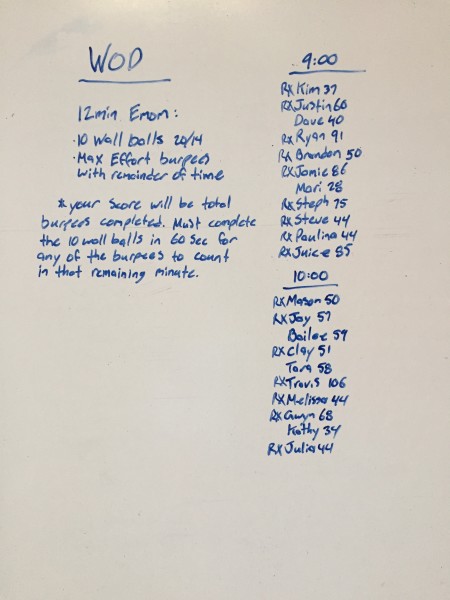 WOD
12min Emom:
·10 Wall balls 20/14
·Max Effort burpees
with remainder of time
*your score will be total
burpees completed. Must complete
the 10 wall balls in 60 sec for
any of the burpees to count
in that remaining minute.
9:00
RX Kim 37
RX Justin 60
Dave 40
RX Ryan 91
RX Brandon 50
RX Jamie 86
Mari 28
RX Steph 75
RX Steve 44
RX Paulina 44
RX Juice 85
10:00
RX Mason 50
RX Jay 57
Bailee 59
RX Clay 51
Tara 58
RX Travis 106
RX Melissa 44
RX Gwyn 68
Kathy 34
RX Julia 44